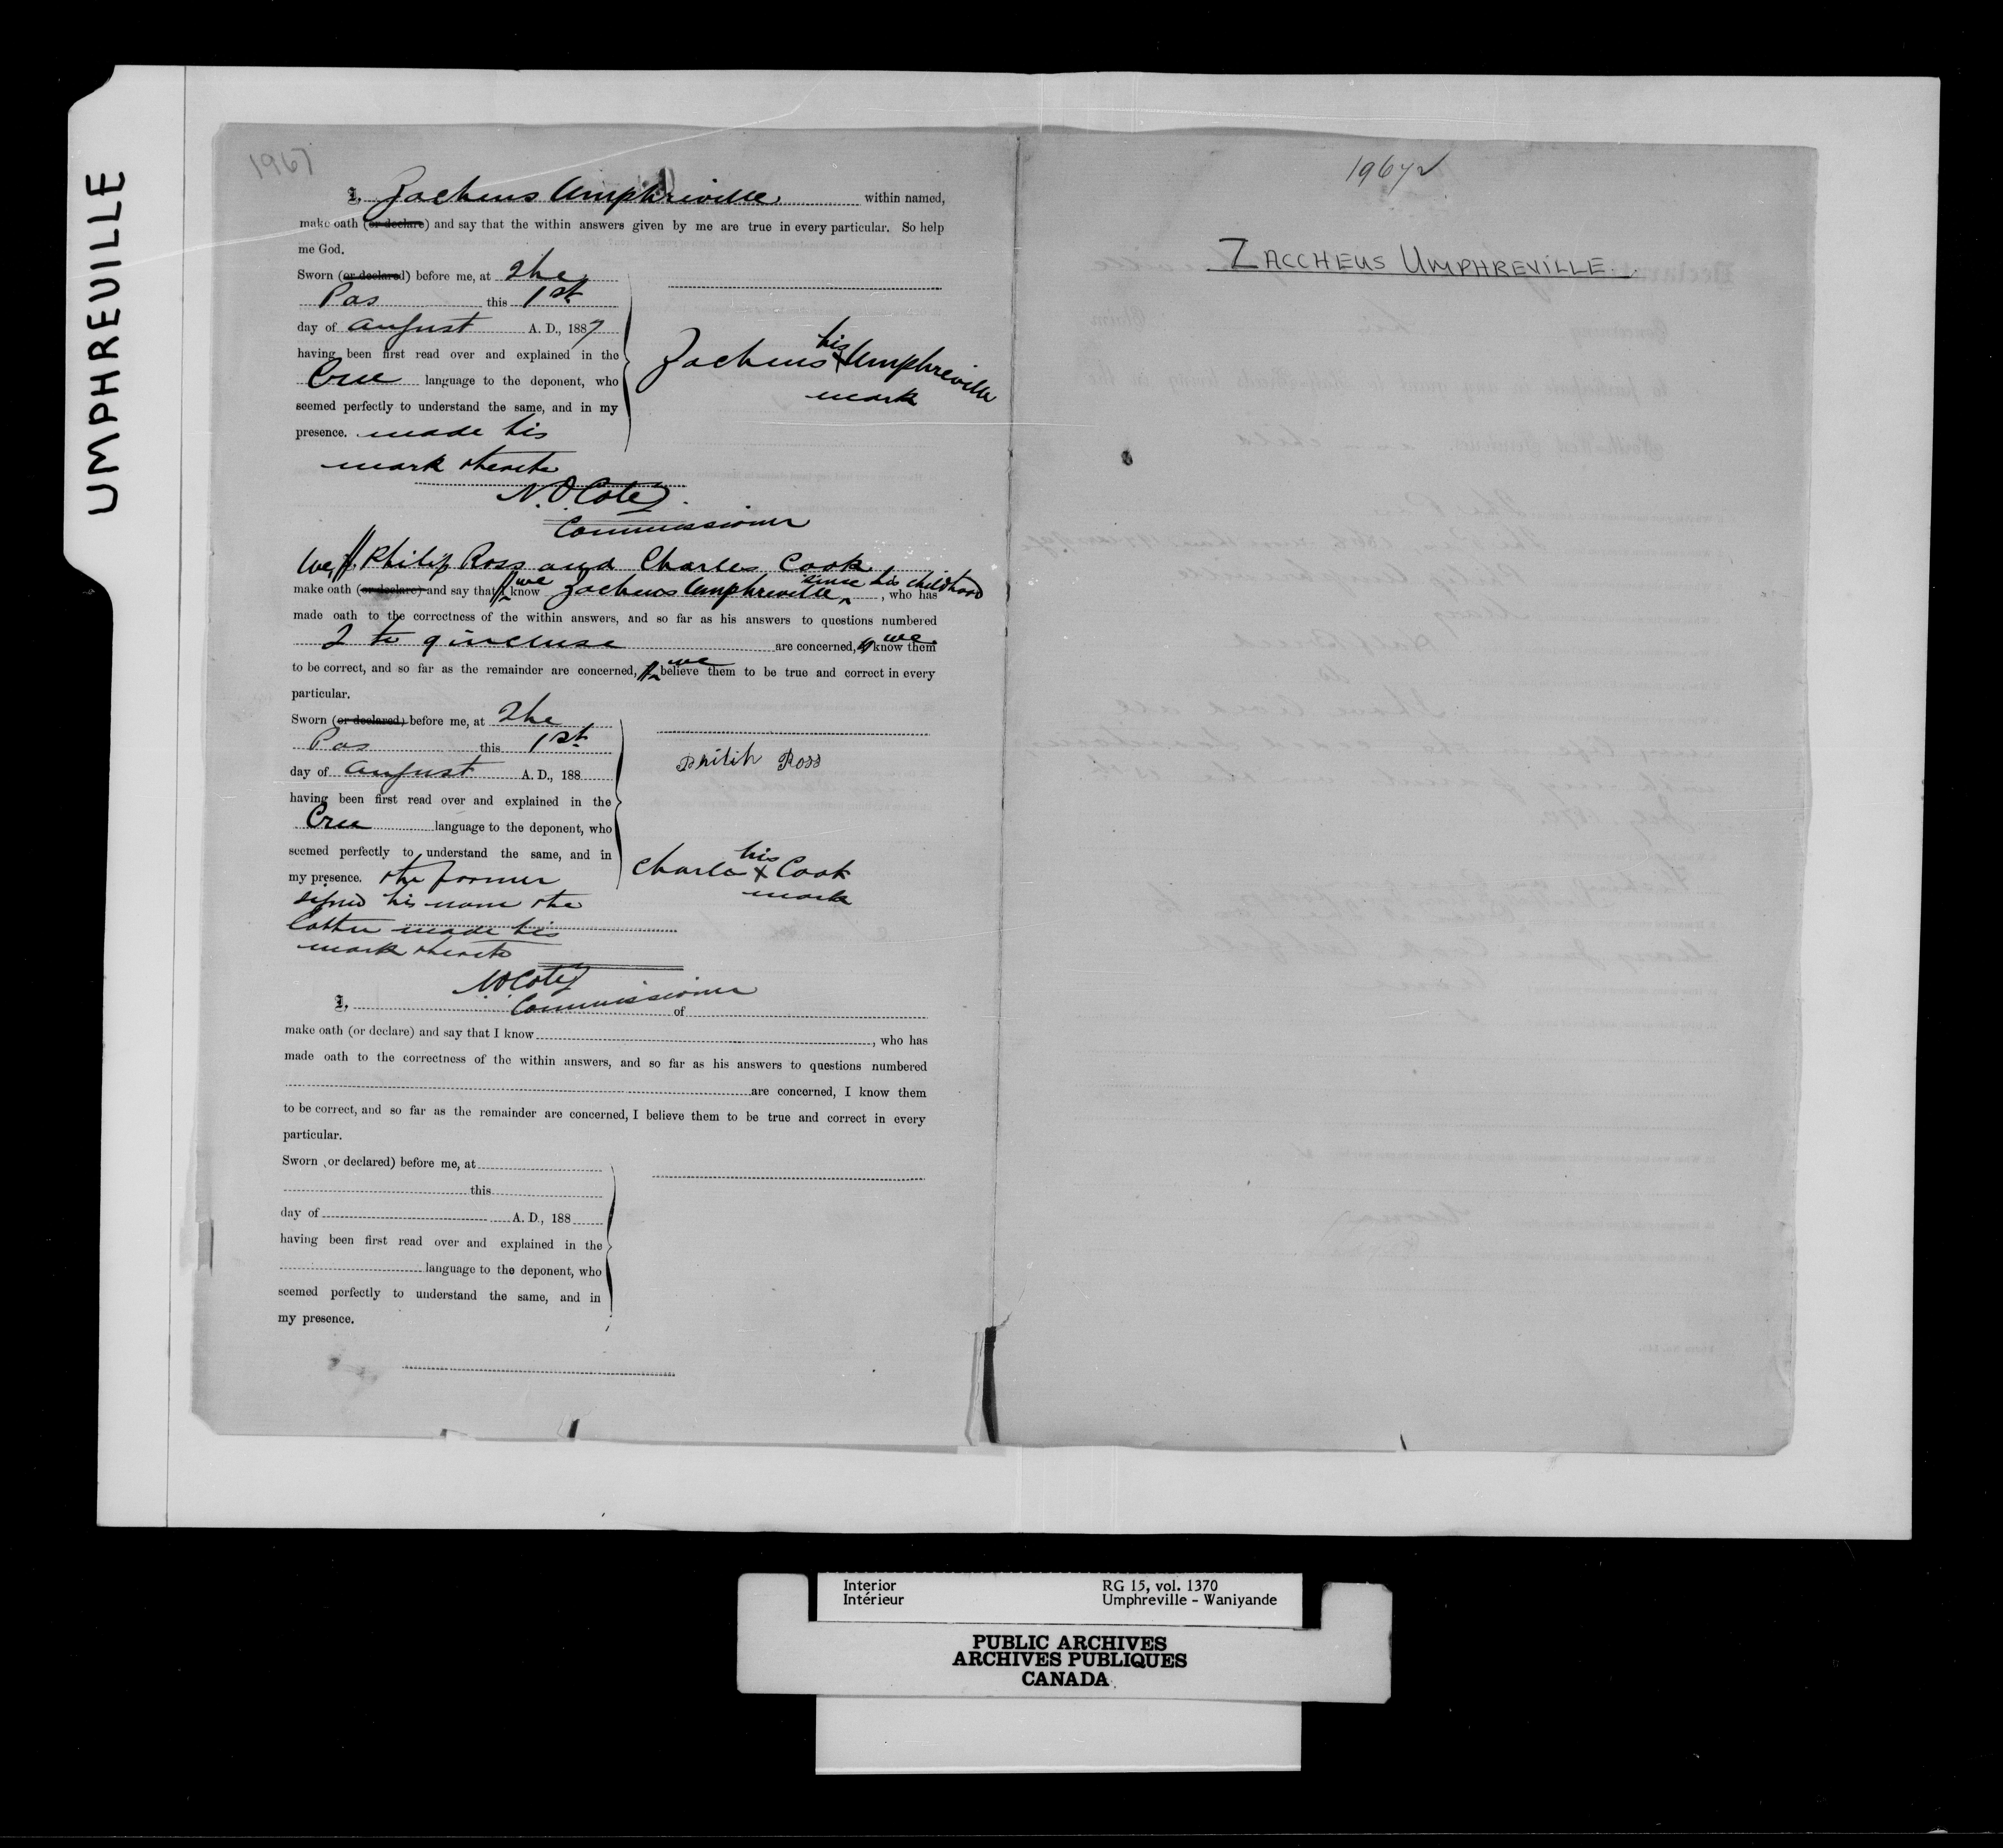 UMPHREVILLE
1967
I, Zacheus Umphreville within named,
make oath (or declare) and say that the within answers given by me are true in every particular. So help
me God.
Sworn (or declared) before me, at The
Pas this 1st
day of August A. D., 1887
having been first read over and explained in the
Cree language to the deponent, who
seemed perfectly to understand the same, and in my
presence. made his
mark thereto
Zacheus his x mark Umphreville
N.O. Coté
Commissioner
We, I, Philip Ross and Charles Cook
make oath (or declare) and say that I we know Zacheus Umphreville since his childhood, who has
made oath to the correctness of the within answers, and so far as his answers to questions numbered
2 to 9 incluse are concerned, I we know them
to be correct, and so far as the remainder are concerned, I we believe them to be true and correct in every
particular.
Sworn (or declared) before me, at The
Pas this 1st
day of August A. D., 188
having been first read over and explained in the
Cree language to the deponent, who
seemed perfectly to understand the same, and in
my presence. the former
signed his name the
latter made his
mark thereto
Philip Ross
Charles his x mark Cook
N.O. Coté
Commissioner
I, of
make oath (or declare) and say that I know , who has
made oath to the correctness of the within answers, and so far as his answers to questions numbered
are concerned, I know them
to be correct, and so far as the remainder are concerned, I believe them to be true and correct in every
particular.
Sworn (or declared) before me, at
this
day of A. D., 188
having been first read over and explained in the
language to the deponent, who
seemed perfectly to understand the same, and in
my presence.
1967
ZACCHEUS UMPHREVILLE
Interior RG 15, vol. 1370
Intérieur Umphreville - Waniyande
PUBLIC ARCHIVES
ARCHIVES PUBLIQUES
CANADA